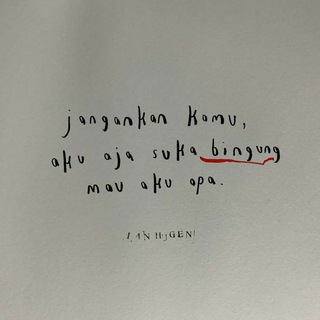 jangankan kamu,
aku aja suka bingung
mau aku apa.